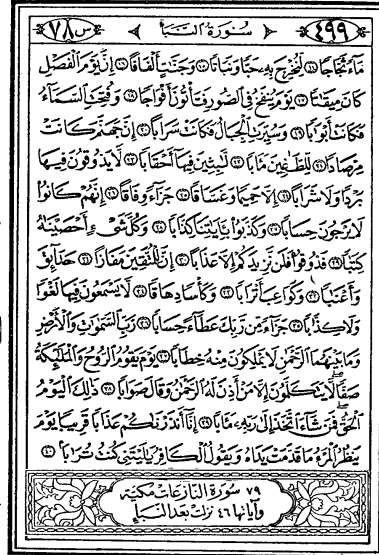 ٤٩٩ سُورَةُ النَّبَأِ س ٧٨
مَآءً ثَجَّاجًا ١٤ لِّنُخْرِجَ بِهِۦ حَبًّا وَنَبَاتًا ١٥ وَجَنَّٰتٍ أَلْفَافًا ١٦ إِنَّ يَوْمَ ٱلْفَصْلِ
كَانَ مِيقَٰتًا ١٧ يَوْمَ يُنفَخُ فِى ٱلصُّورِ فَتَأْتُونَ أَفْوَاجًا ١٨ وَفُتِحَتِ ٱلسَّمَآءُ
فَكَانَتْ أَبْوَٰبًا ١٩ وَسُيِّرَتِ ٱلْجِبَالُ فَكَانَتْ سَرَابًا ٢٠ إِنَّ جَهَنَّمَ كَانَتْ
مِرْصَادًا ٢١ لِّلطَّٰغِينَ مَـَٔابًا ٢٢ لَّٰبِثِينَ فِيهَآ أَحْقَابًا ٢٣ لَّا يَذُوقُونَ فِيهَا
بَرْدًا وَلَا شَرَابًا ٢٤ إِلَّا حَمِيمًا وَغَسَّاقًا ٢٥ جَزَآءً وِفَاقًا ٢٦ إِنَّهُمْ كَانُوا۟
لَا يَرْجُونَ حِسَابًا ٢٧ وَكَذَّبُوا۟ بِـَٔايَٰتِنَا كِذَّابًا ٢٨ وَكُلَّ شَىْءٍ أَحْصَيْنَٰهُ
كِتَٰبًا ٢٩ فَذُوقُوا۟ فَلَن نَّزِيدَكُمْ إِلَّا عَذَابًا ٣٠ إِنَّ لِلْمُتَّقِينَ مَفَازًا ٣١ حَدَآئِقَ
وَأَعْنَٰبًا ٣٢ وَكَوَاعِبَ أَتْرَابًا ٣٣ وَكَأْسًا دِهَاقًا ٣٤ لَّا يَسْمَعُونَ فِيهَا لَغْوًا
وَلَا كِذَّٰبًا ٣٥ جَزَآءً مِّن رَّبِّكَ عَطَآءً حِسَابًا ٣٦ رَّبِّ ٱلسَّمَٰوَٰتِ وَٱلْأَرْضِ
وَمَا بَيْنَهُمَا ٱلرَّحْمَٰنِ لَا يَمْلِكُونَ مِنْهُ خِطَابًا ٣٧ يَوْمَ يَقُومُ ٱلرُّوحُ وَٱلْمَلَٰٓئِكَةُ
صَفًّا لَّا يَتَكَلَّمُونَ إِلَّا مَنْ أَذِنَ لَهُ ٱلرَّحْمَٰنُ وَقَالَ صَوَابًا ٣٨ ذَٰلِكَ ٱلْيَوْمُ
ٱلْحَقُّ فَمَن شَآءَ ٱتَّخَذَ إِلَىٰ رَبِّهِۦ مَـَٔابًا ٣٩ إِنَّآ أَنذَرْنَٰكُمْ عَذَابًا قَرِيبًا يَوْمَ
يَنظُرُ ٱلْمَرْءُ مَا قَدَّمَتْ يَدَاهُ وَيَقُولُ ٱلْكَافِرُ يَٰلَيْتَنِى كُنتُ تُرَٰبًۢا ٤٠
٧٩ سورة النازعات مكية
وآياتها ٤٦ نزلت بعد النبأ